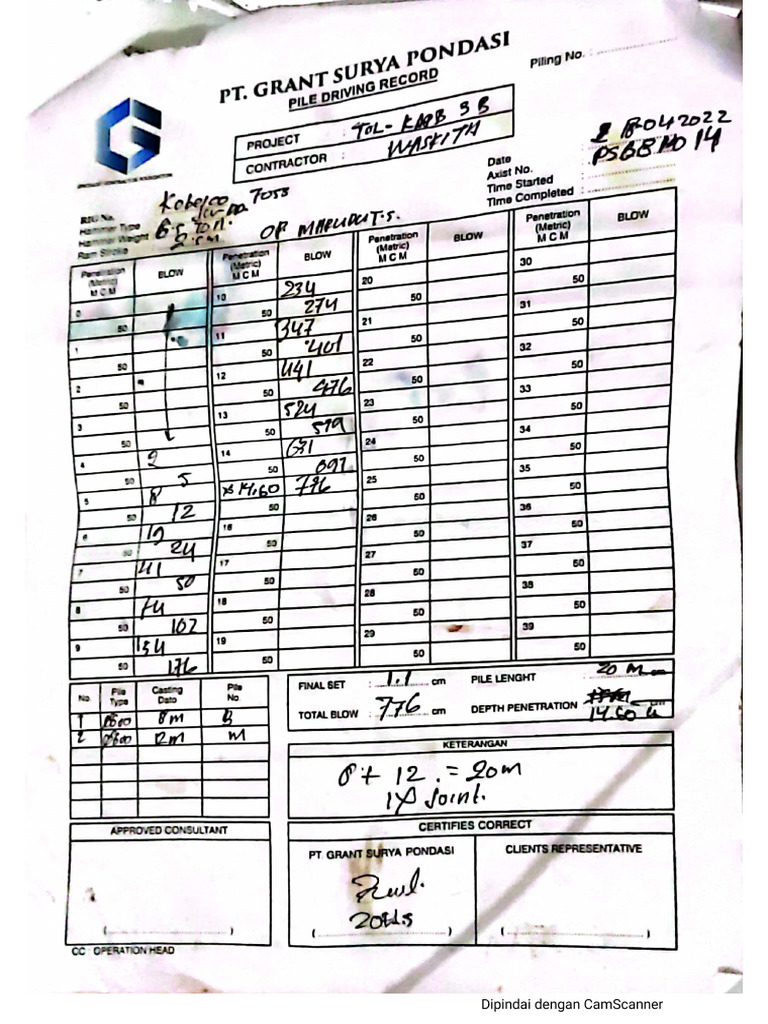 PT. GRANT SURYA PONDASI
PILE DRIVING RECORD
Piling No. :
PROJECT : TOL - KAPB 3 B
CONTRACTOR : WASKITA
Date 18-04 2022
Axist No. :
Time Started :
Time Completed :
RIG No. Kobelco 7055
Hammer Type
Hammer Weight 6.5 Ton.
Ram Stroke 2.5 m
OP MARUDUT.S.
Penetration (Metric) M C M BLOW
0
50
1
50
2
50
3
50
4 2
50 5
5 8
50 12
6 19
50 24
7 41
50 50
8 74
50 102
9 134
50 176
Penetration (Metric) M C M BLOW
10 234
50 274
11 347
50 401
12 441
50 476
13 524
50 579
14 631
50 697
14.60 776
50
16
50
17
50
18
50
19
50
Penetration (Metric) M C M BLOW
20
50
21
50
22
50
23
50
24
50
25
50
26
50
27
50
28
50
29
50
Penetration (Metric) M C M BLOW
30
50
31
50
32
50
33
50
34
50
35
50
36
50
37
50
38
50
39
50
No. Pile Type Casting Dato Pile No.
1 8 m B
2 12 m M
FINAL SET : 1.1 cm
TOTAL BLOW : 776 cm
PILE LENGHT : 20 m cm
DEPTH PENETRATION : 14.60
KETERANGAN
8 + 12 . = 20m
1 Joint.
APPROVED CONSULTANT
( )
CERTIFIES CORRECT
PT. GRANT SURYA PONDASI
( )
CLIENTS REPRESENTATIVE
( )
CC : OPERATION HEAD
Dipindai dengan CamScanner